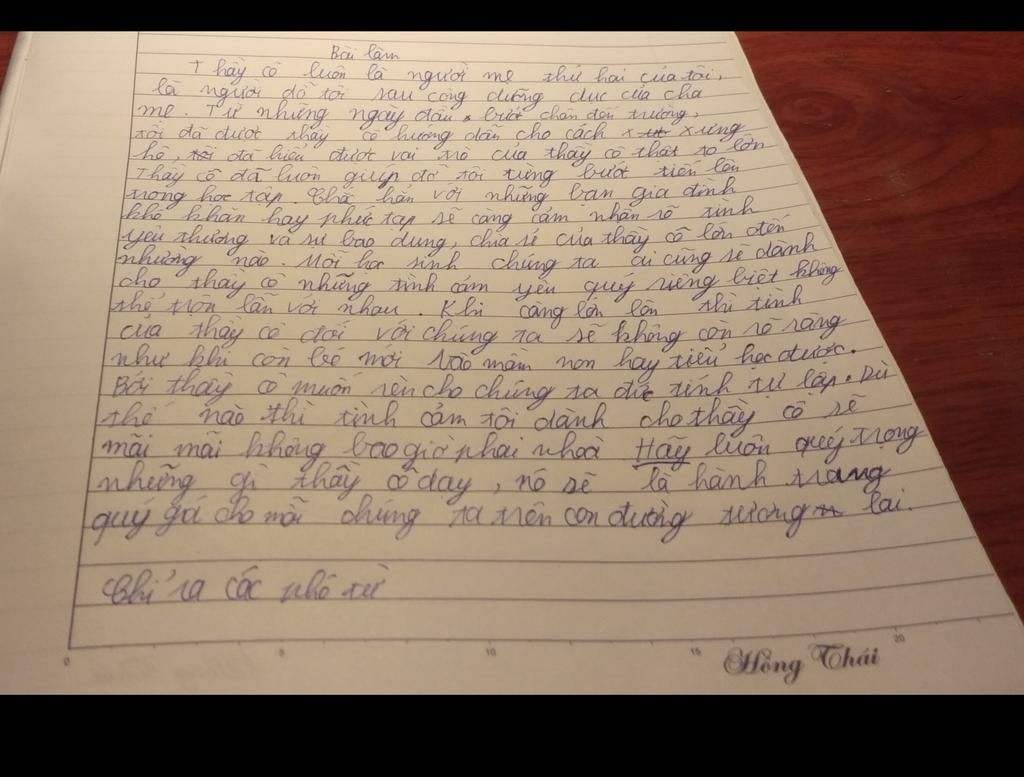 Bài làm
Thầy cô luôn là người mẹ thứ hai của tôi,
là người dỗ tôi sau công dưỡng dục của cha
mẹ. Từ những ngày đầu bước chân đến trường,
tôi đã được thầy cô hướng dẫn cho cách xưng
hô, tôi đã hiểu được vai trò của thầy cô thật to lớn
Thầy cô đã luôn giúp đỡ tôi từng bước tiến lên
trong học tập. Chắc hẳn với những bạn gia đình
khó khăn hay phức tạp sẽ càng cảm nhận rõ tình
yêu thương và sự bao dung, chia sẻ của thầy cô lớn đến
nhường nào. Mỗi học sinh chúng ta ai cũng sẽ dành
cho thầy cô những tình cảm yêu quý riêng biệt không
thể trộn lẫn với nhau. Khi càng lớn lên thì tình
của thầy cô đối với chúng ta sẽ không còn rõ ràng
như khi còn bé mới vào mầm non hay tiểu học được.
Bởi thầy cô muốn rèn cho chúng ta đức tính tự lập. Dù
thế nào thì tình cảm tôi dành cho thầy cô sẽ
mãi mãi không bao giờ phai nhoà Hãy luôn quý trọng
những gì thầy cô dạy, nó sẽ là hành trang
quý gá cho mỗi chúng ta trên con đường tương lai.
Chỉ ra các phó từ
0 5 10 15 20
Hồng Thái